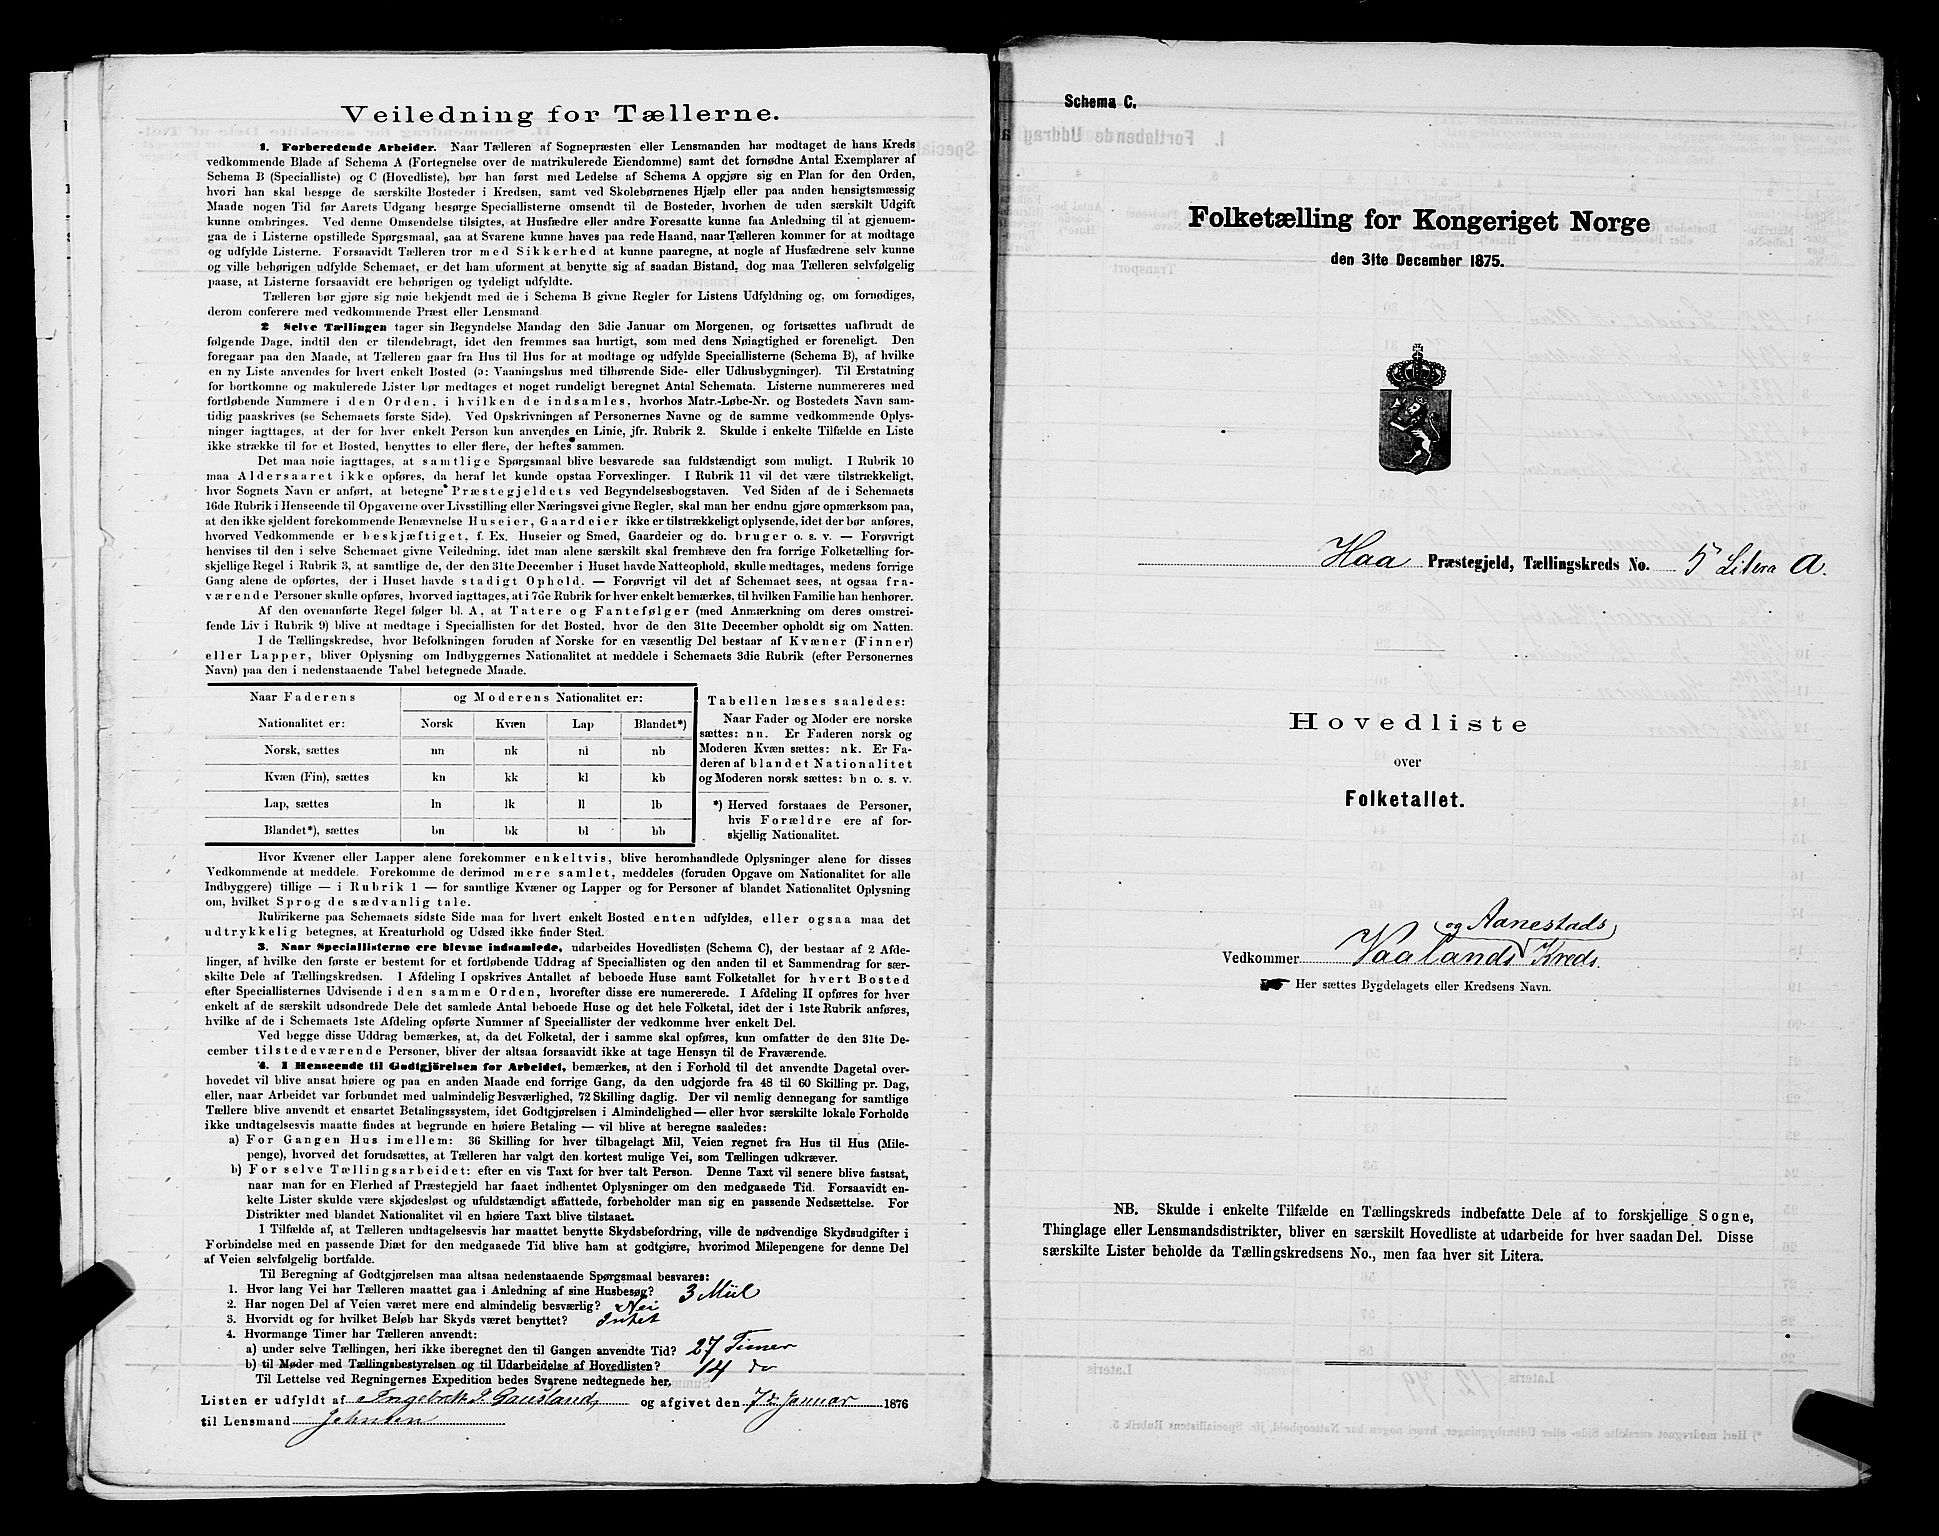 Veiledning for Tællerne.
1. Forberedende Arbeider. Naar Tælleren af Sognepræsten eller Lensmanden har modtaget de hans Kreds
vedkommende Blade af Schema A (Fortegnelse over de matrikulerede Eiendomme) samt det fornødne Antal Exemplarer af
Schema B (Specialliste) og C (Hovedliste), bør han først med Ledelse af Schema A opgjøre sig en Plan for den Orden,
hvori han skal besøge de særskilte Bosteder i Kredsen, samt ved Skolebørnenes Hjælp eller paa anden hensigtsmæssig
Maade nogen Tid før Aarets Udgang besørge Speciallisterne omsendt til de Bosteder, hvorhen de uden særskilt Udgift
kunne ombringes. Ved denne Omsendelse tilsigtes, at Husfædre eller andre Foresatte kunne faa Anledning til at gjenuem-
gaa de i Listerne opstillede Spørgsmaal, saa at Svarene kunne haves paa rede Haand, naar Tælleren kommer for at modtage
og udfylde Listerne. Forsaavidt Tælleren tror med Sikkerhed at kunne paaregne, at nogle af Husfædrene selv kunne
og ville behørigen udfylde Schemaet, er det ham uforment at benytte sig af saadan Bistand, dog maa Tælleren selvfølgelig
paase, at Listerne forsaavidt ere behørigen og tydeligt udfyldte.
Tælleren bør gjøre sig nøie bekjendt med de i Schema B givne Regler for Listens Udfyldning og, om fornødiges,
derom conferere med vedkommende Præst eller Lensmand
2 Selve Tællingen tager sin Begyndelse Mandag den 3die Januar om Morgenen, og fortsættes uafbrudt de
følgende Dage, indtil den er tilendebragt, idet den fremmes saa hurtigt, som med dens Nøiagtighed er foreneligt. Den
foregaar paa den Maade, at Tælleren gaar fra Hus til Hus for at modtage og udfylde Speciallisterne (Schema B), af hvilke
en ny Liste anvendes for hvert enkelt Bosted (ɔ: Vaaningshus med tilhørende Side- eller Udhusbygninger). Til Erstatning
for bortkomne og makulerede Lister bør medtages et noget rundeligt beregnet Antal Schemata. Listerne nummereres med
fortløbende Nummere i den Orden, i hvilken de indsamles, hvorhos Matr.-Løbe-Nr. og Bostedets Navn sam-
tidig paaskrives (se Schemaets første Side). Ved Opskrivningen af Personernes Navne og de samme vedkommende Oplys-
ninger iagttages, at der for hver enkelt Person kun anvendes en Linie, jfr. Rubrik 2. Skulde i enkelte Tilfælde en Liste
ikke strække til for et Bosted, benyttes to eller flere, der heftes sammen.
Det maa nøie iagttages, at samtlige Spørgsmaal blive besvarede saa fuldstændigt som muligt. I Rubrik 10
maa Aldersaaret ikke opføres, da heraf let kunde opstaa Forvexlinger. I Rubrik 11 vil det være tilstrækkeligt,
hvor Sognets Navn er anført, at betegne Præstegjeldets ved Begyndelsesbogstaven. Ved Siden af de i Schemaets
16de Rubrik i Henseende til Opgaverne over Livsstilling eller Næringsvei givne Regler, skal man her endnu gjøre opmærksom paa,
at den ikke sjeldent forekommende Benævnelse Huseier, Gaardeier ikke er tilstrækkeligt oplysende, idet der bør anføres,
hvorved Vedkommende er beskjæftiget, f. Ex. Huseier og Smed, Gaardeier og do. bruger o. s. v. — Forøvrigt
henvises til den i selve Schemaet givne Veiledning, idet man alene særskilt skal fremhæve den fra forrige Folketælling for-
skjellige Regel i Rubrik 3, at samtlige de, der den 31te December i Huset havde Natteophold, skulle medtages, medens forrige
Gang alene de opførtes, der i Huset havde stadigt Ophold. — Forøvrigt vil det af Schemaet sees, at ogsaa fra-
værende Personer skulle opføres, hvorved iagttages, at i 7de Rubrik for hver enkelt bemærkes, til hvilken Familie han henhører.
Af den ovenanførte Regel følger bl. A, at Tatere og Fantefølger (med Anmærkning om deres omstrei-
fende Liv i Rubrik 9) blive at medtage i Speciallisten for det Bosted, hvor de den 31te December opholdt sig om Natten.
I de Tællingskredse, hvor Befolkningen foruden af Norske for en væsentlig Del bestaar af Kvæner (Finner)
eller Lapper, bliver Oplysning om Indbyggernes Nationalitet at meddele i Schemaets 3die Rubrik (efter Personernes
Navn) paa den i nedenstaaende Tabel betegnede Maade.
Naar Faderens og Moderens Nationalitet er:
Nationalitet er: Norsk Kvæn Lap Blandet*)
Norsk, sættes nn nk nl nb
Kvæn (Fin), sættes kn kk kl kb
Lap, sættes ln lk ll lb
Blandet*), sættes bn bk bl bb
Tabellen læses saaledes:
Naar Fader og Moder ere norske
sættes: nn. Er Faderen norsk og
Moderen Kvæn sættes: nk. Er Fa-
deren af blandet Nationalitet
og Moder norsk sættes: bn o. s. v.
*) Herved forstaaes de Personer,
hvis Forældre ere af for-
skjellig Nationalitet.
Hvor Kvæner eller Lapper alene forekommer enkeltvis, blive heromhandlede Oplysninger alene for disses
Vedkommende at meddele. Forekomme de derimod mere samlet, meddeles (foruden Opgave om Nationalitet for alle
Indbyggere) tillige — i Rubrik 1 — for samtlige Kvæner og Lapper og for Personer af blandet Nationalitet Oplysning
om, hvilket Sprog de sædvanlig tale.
Rubrikerne paa Schemaets sidste Side maa for hvert enkelt Bosted enten udfyldes, eller ogsaa maa det
udtrykkelig betegnes, at Kreaturhold og Udsæd ikke finder Sted.
3. Naar Speciallisterne ere blevne indsamlede, udarbeides Hovedlisten (Schema C), der bestaar af 2 Afde-
linger, af hvilke den første er bestemt for et fortløbende Uddrag af Speciallisten og den anden til et Sammendrag for sær-
skilte Dele af Tællingskredsen. I Afdeling I opskrives Antallet af beboede Huse samt Folketallet for hvert Bosted
efter Speciallisternes Udvisende i den samme Orden, hvorefter disse ere numererede. I Afdeling II opføres for hver
enkelt af de særskilt udsondrede Dele det samlede Antal beboede Huse og det hele Folketal, idet der i 1ste Rubrik anføres,
hvilke af de i Schemaets 1ste Afdeling opførte Nummer af Speciallister der vedkomme hver enkelt Del.
Ved begge disse Uddrag bemærkes, at, da det Folketal, der i samme skal opføres, kun omfatter de den 31te De-
cember tilstedeværende Personer, bliver der altsaa forsaavidt ikke at tage Hensyn til de Fraværende.
4. I Henseende til Godtgjörelsen for Arbeidet, bemærkes, at den i Forhold til det anvendte Dagetal over-
hovedet vil blive ansat høiere og paa en anden Maade end forrige Gang, da den udgjorde fra 48 til 60 Skilling pr. Dag,
eller, naar Arbeidet var forbundet med ualmindelig Besværlighed, 72 Skilling daglig. Der vil nemlig dennegang for samtlige
Tællere blive anvendt et ensartet Betalingssystem, idet Godtgjörelsen i Almindelighed — eller hvor særskilte lokale Forholde
ikke undtagelsesvis maatte findes at begrunde en høiere Betaling — vil blive at beregne saaledes:
a) For Gangen Hus imellem: 36 Skilling for hver tilbagelagt Mil, Veien regnet fra Hus til Hus (Mile-
penge), hvorved det forudsættes, at Tælleren har valgt den kortest mulige Vei, som Tællingen udkræver.
b) For selve Tællingsarbeidet: efter en vis Taxt for hver talt Person. Denne Taxt vil senere blive fastsat,
naar man for en Flerhed af Præstegjeld har faaet indhentet Oplysninger om den medgaaede Tid. Forsaavidt en-
kelte Lister skulde være skjødesløst og ufuldstændigt affattede, forbeholder man sig en passende Nedsættelse. For
Distrikter med blandet Nationalitet vil en høiere Taxt blive tilstaaet.
I Tilfælde af, at Tælleren undtagelsesvis har maattet benytte Skydsbefordring, ville de nødvendige Skydsudgifter i
Forbindelse med en passende Diæt for den medgaaede Tid blive ham at godtgjøre, hvorimod Milepengene for denne Del
af Veien selvfølgelig bortfalde.
Til Beregning af Godtgjörelsen maa altsaa nedenstaaende Spørgsmaal besvares:
1. Hvor lang Vei har Tælleren maattet gaa i Anledning af sine Husbesøg? 3 Miil
2. Har nogen Del af Veien været mere end almindelig besværlig? Nei
3. Hvorvidt og for hvilket Beløb har Skyds været benyttet? Intet
4. Hvormange Timer har Tælleren anvendt:
a) under selve Tællingen, heri ikke iberegnet den til Gangen anvendte Tid? 27 Timer
b) til Møder med Tællingsbestyrelsen og til Udarbeidelse af Hovedlisten? 14 do
Til Lettelse ved Regningernes Expedition bedes Svarene nedtegnede her.
Listen er udfyldt af Ingebret P Gausland, og afgivet den 7de Januar 1876
til Lensmand
Schema C.
Folketælling for Kongeriget Norge
den 31te December 1875.
Haa Præstegjeld, Tællingskreds No. 5 Litera A.
Hovedliste
over
Folketallet.
og Aanestads
Vedkommer Vaalands Kreds.
Her sættes Bygdelagets eller Kredsens Navn.
NB. Skulde i enkelte Tilfælde en Tællingskreds indbefatte Dele af to forskjellige Sogne,
Thinglage eller Lensmandsdistrikter, bliver en særskilt Hovedliste at udarbeide for hver saadan Del. Disse
særskilte Lister beholde da Tællingskredsens No., men faa hver sit Litera.